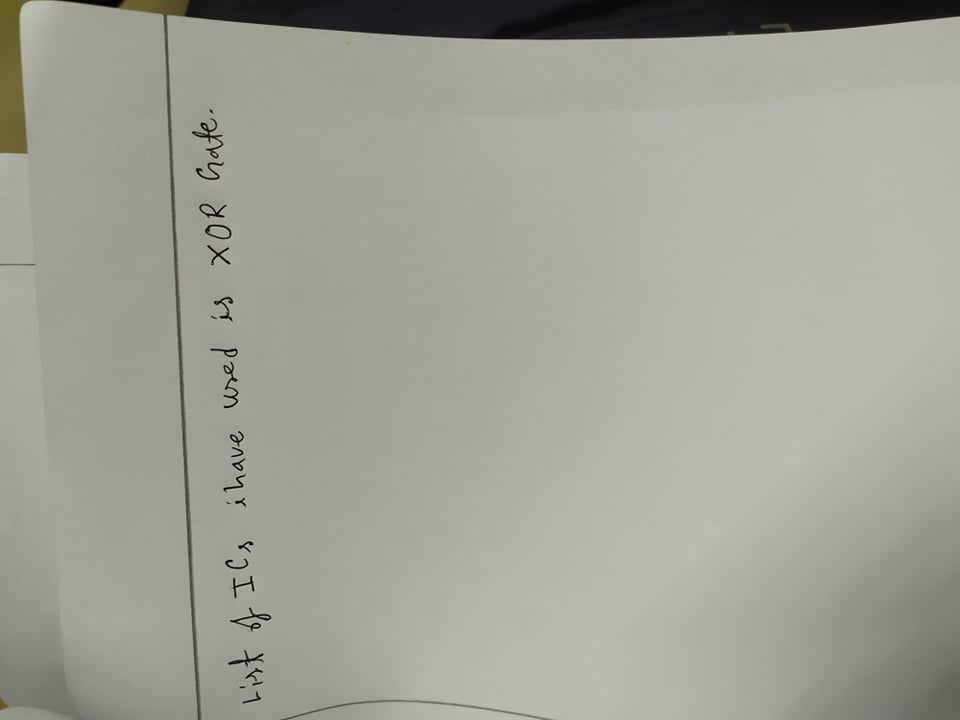 List of ICs i have used is XOR Gate.